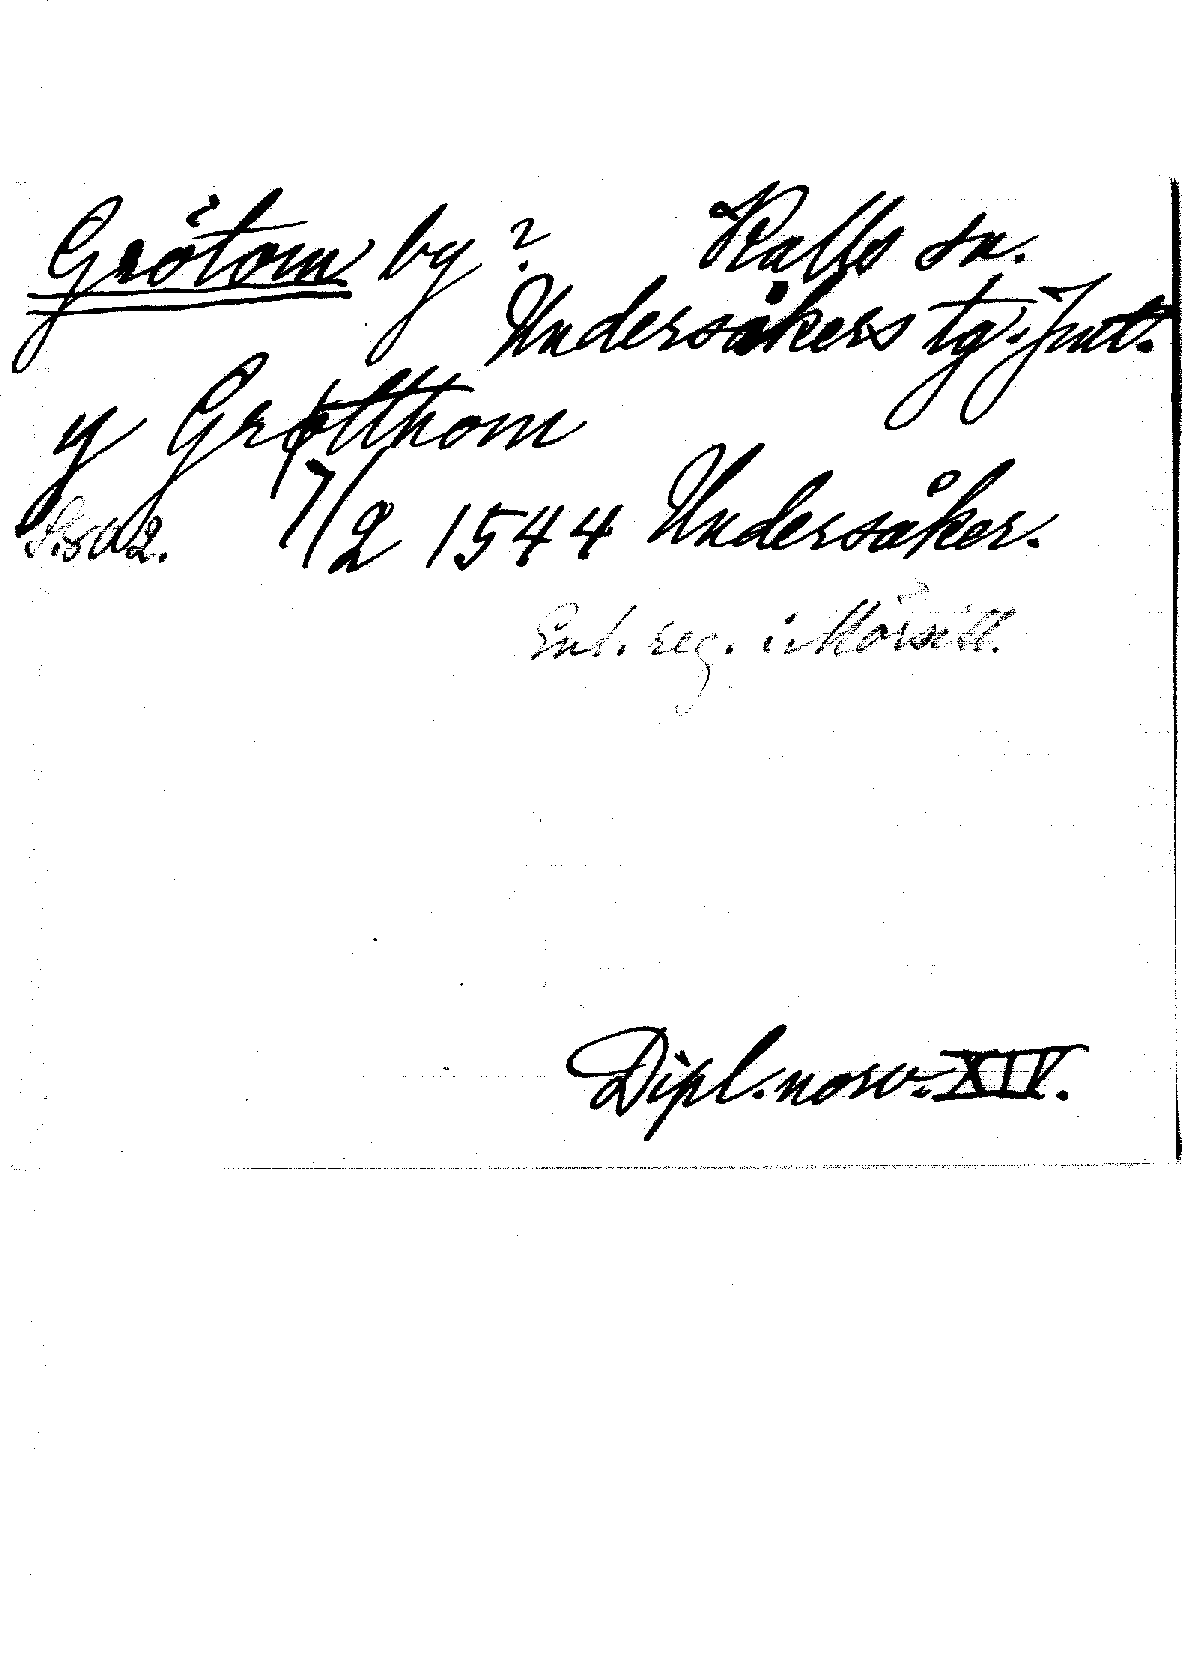 Grötom by? Kalls sn.
Undersåkers tg. Jmtl.
y Grøtthom
S. 802. 7/2 1544 Undersåker.
Enl. reg. i Mörsill.
Dipl. norv. XIV.